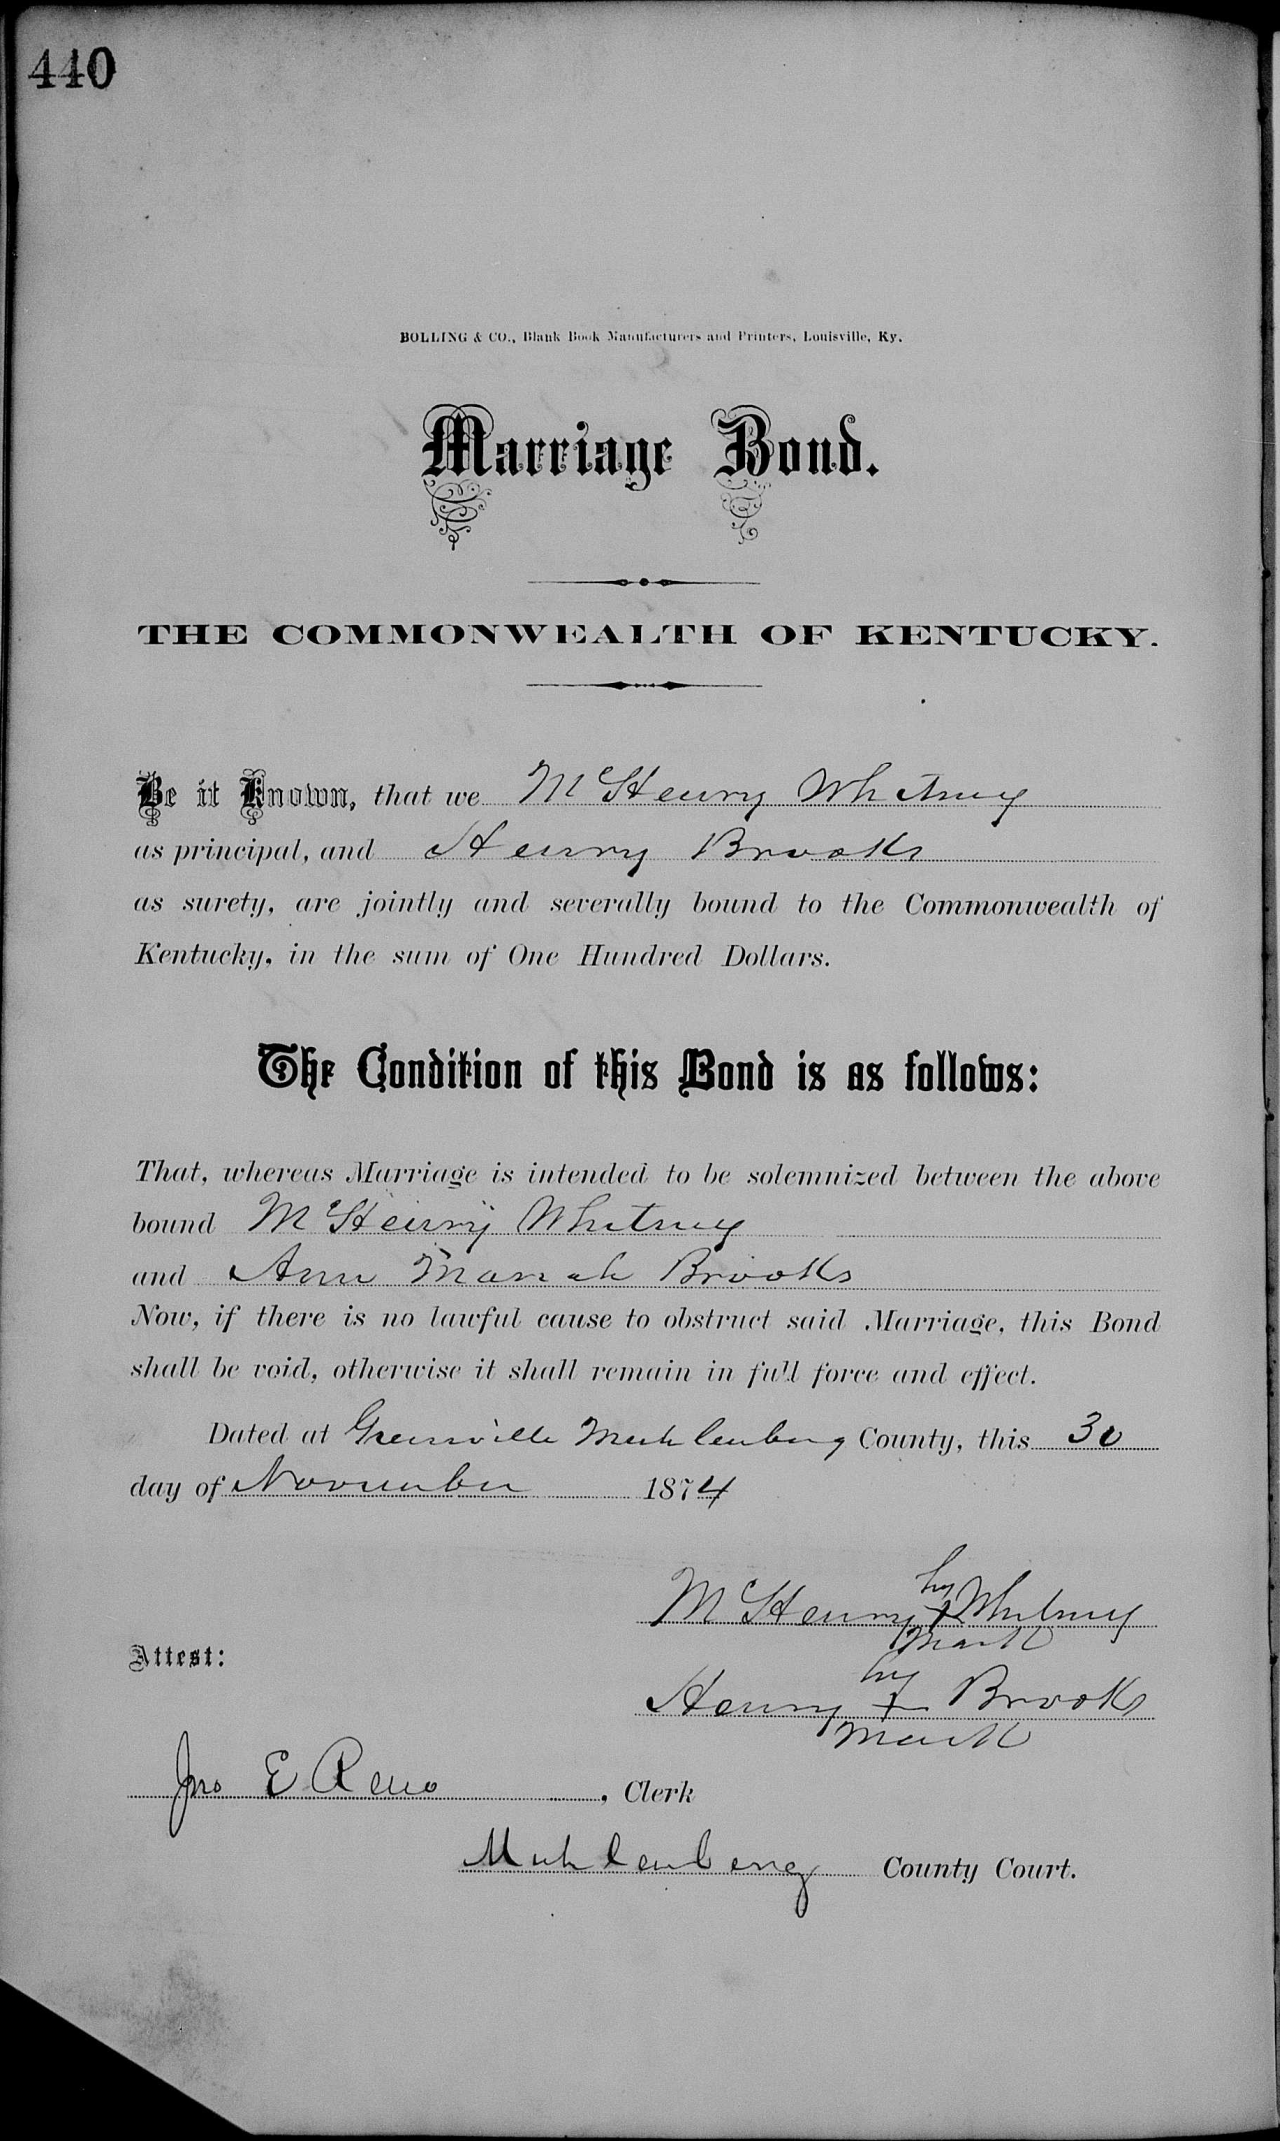 440
BOLLING & CO., Blank Book Manufacturers and Printers, Louisville, Ky.
Marriage Bond.
THE COMMONWEALTH OF KENTUCKY.
Be it Known, that we McHenry Whitney
as principal, and Henry Brooks
as surety, are jointly and severally bound to the Commonwealth of
Kentucky, in the sum of One Hundred Dollars.
The Condition of this Bond is as follows:
That, whereas Marriage is intended to be solemnized between the above
bound McHenry Whitney
and Ann Mariah Brooks
Now, if there is no lawful cause to obstruct said Marriage, this Bond
shall be void, otherwise it shall remain in full force and effect.
Dated at Greenville Muhlenberg County, this 30
day of November 1874
his
McHenry X Whitney
mark
Attest:
his
Henry X Brooks
mark
Jno E Reno, Clerk
Muhlenberg County Court.